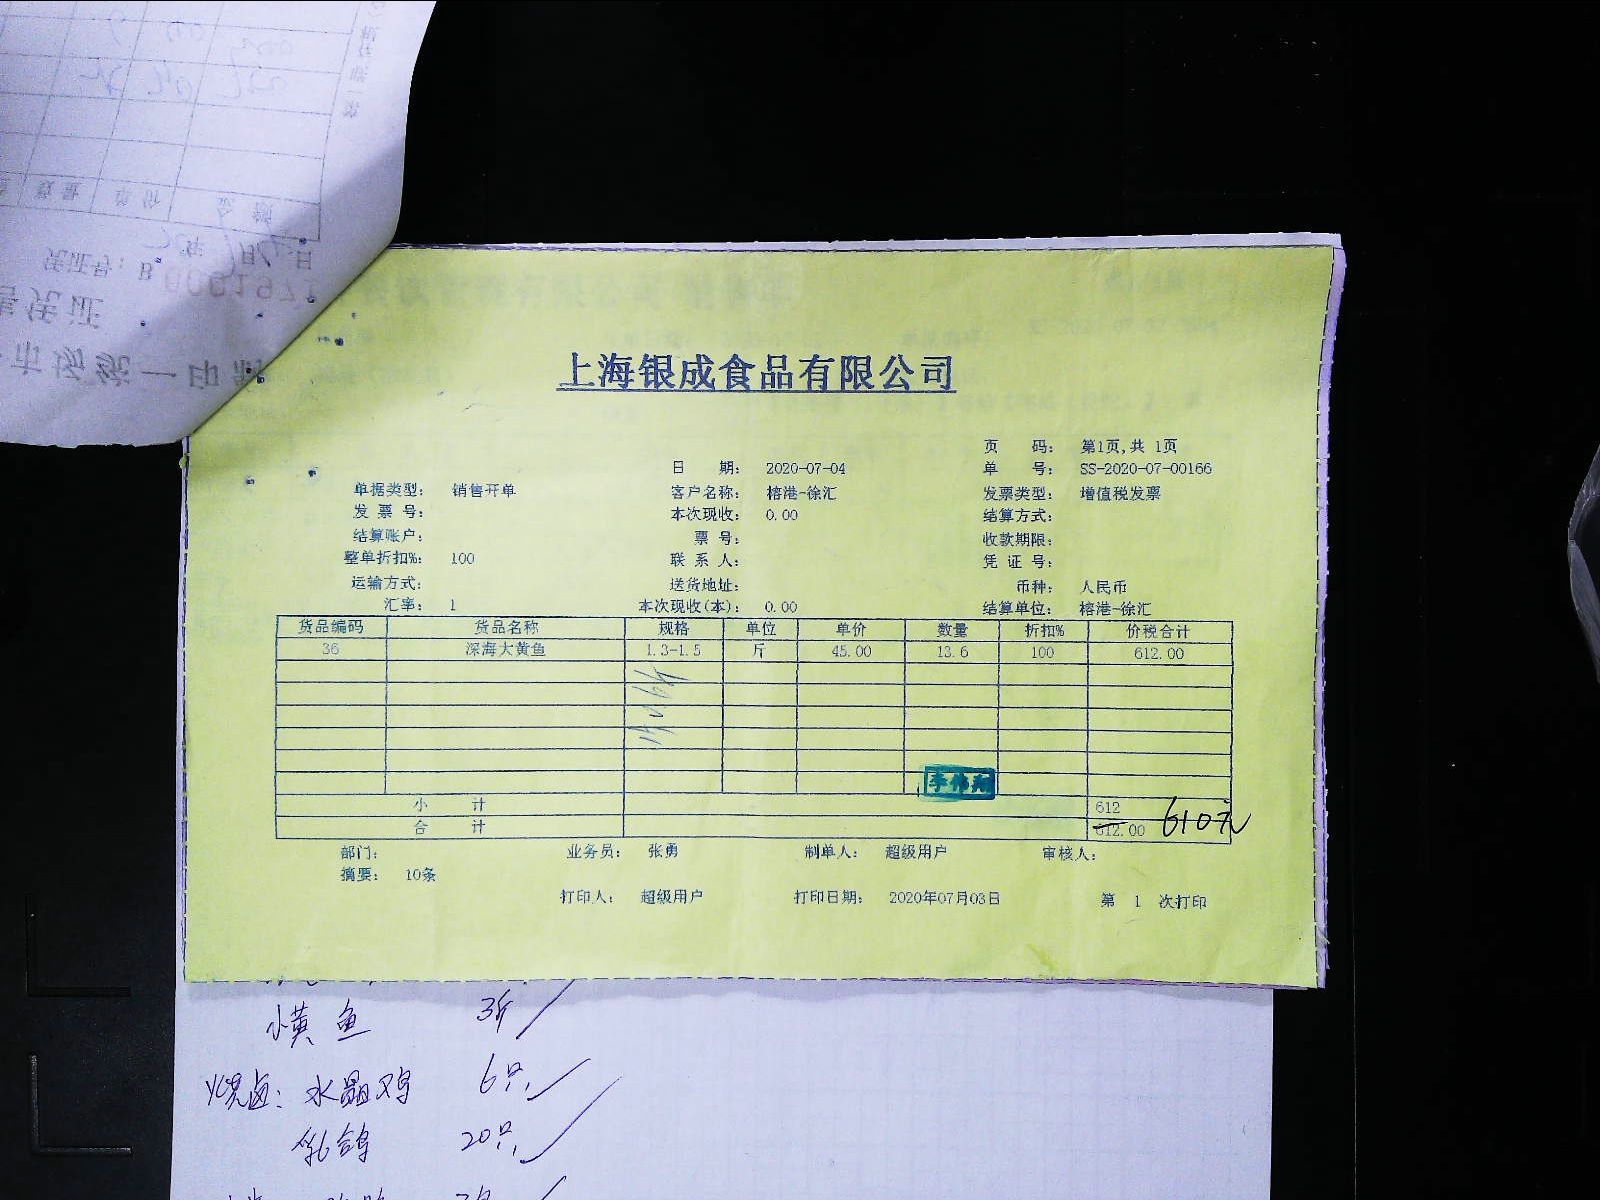 上海银成食品有限公司
页 码： 第1页,共 1页
日 期： 2020-07-04 单 号： SS-2020-07-00166
单据类型： 销售开单 客户名称： 榕港-徐汇 发票类型： 增值税发票
发 票 号： 本次现收： 0.00 结算方式：
结算账户： 票 号： 收款期限：
整单折扣%： 100 联 系 人： 凭 证 号：
运输方式： 送货地址： 币种： 人民币
汇率： 1 本次现收(本)： 0.00 结算单位： 榕港-徐汇
货品编码 货品名称 规格 单位 单价 数量 折扣% 价税合计
36 深海大黄鱼 1.3-1.5 斤 45.00 13.6 100 612.00
李伟翔
小 计 612
合 计 612.00 610元
部门： 业务员： 张勇 制单人： 超级用户 审核人：
摘要： 10条
打印人： 超级用户 打印日期： 2020年07月03日 第 1 次打印
小黄鱼 3斤
烧卤： 水晶鸡 6只
乳鸽 20只
金 额
单 价
数 量
年 月 日
凭证号：B
0061971
凭证
市场统一印制